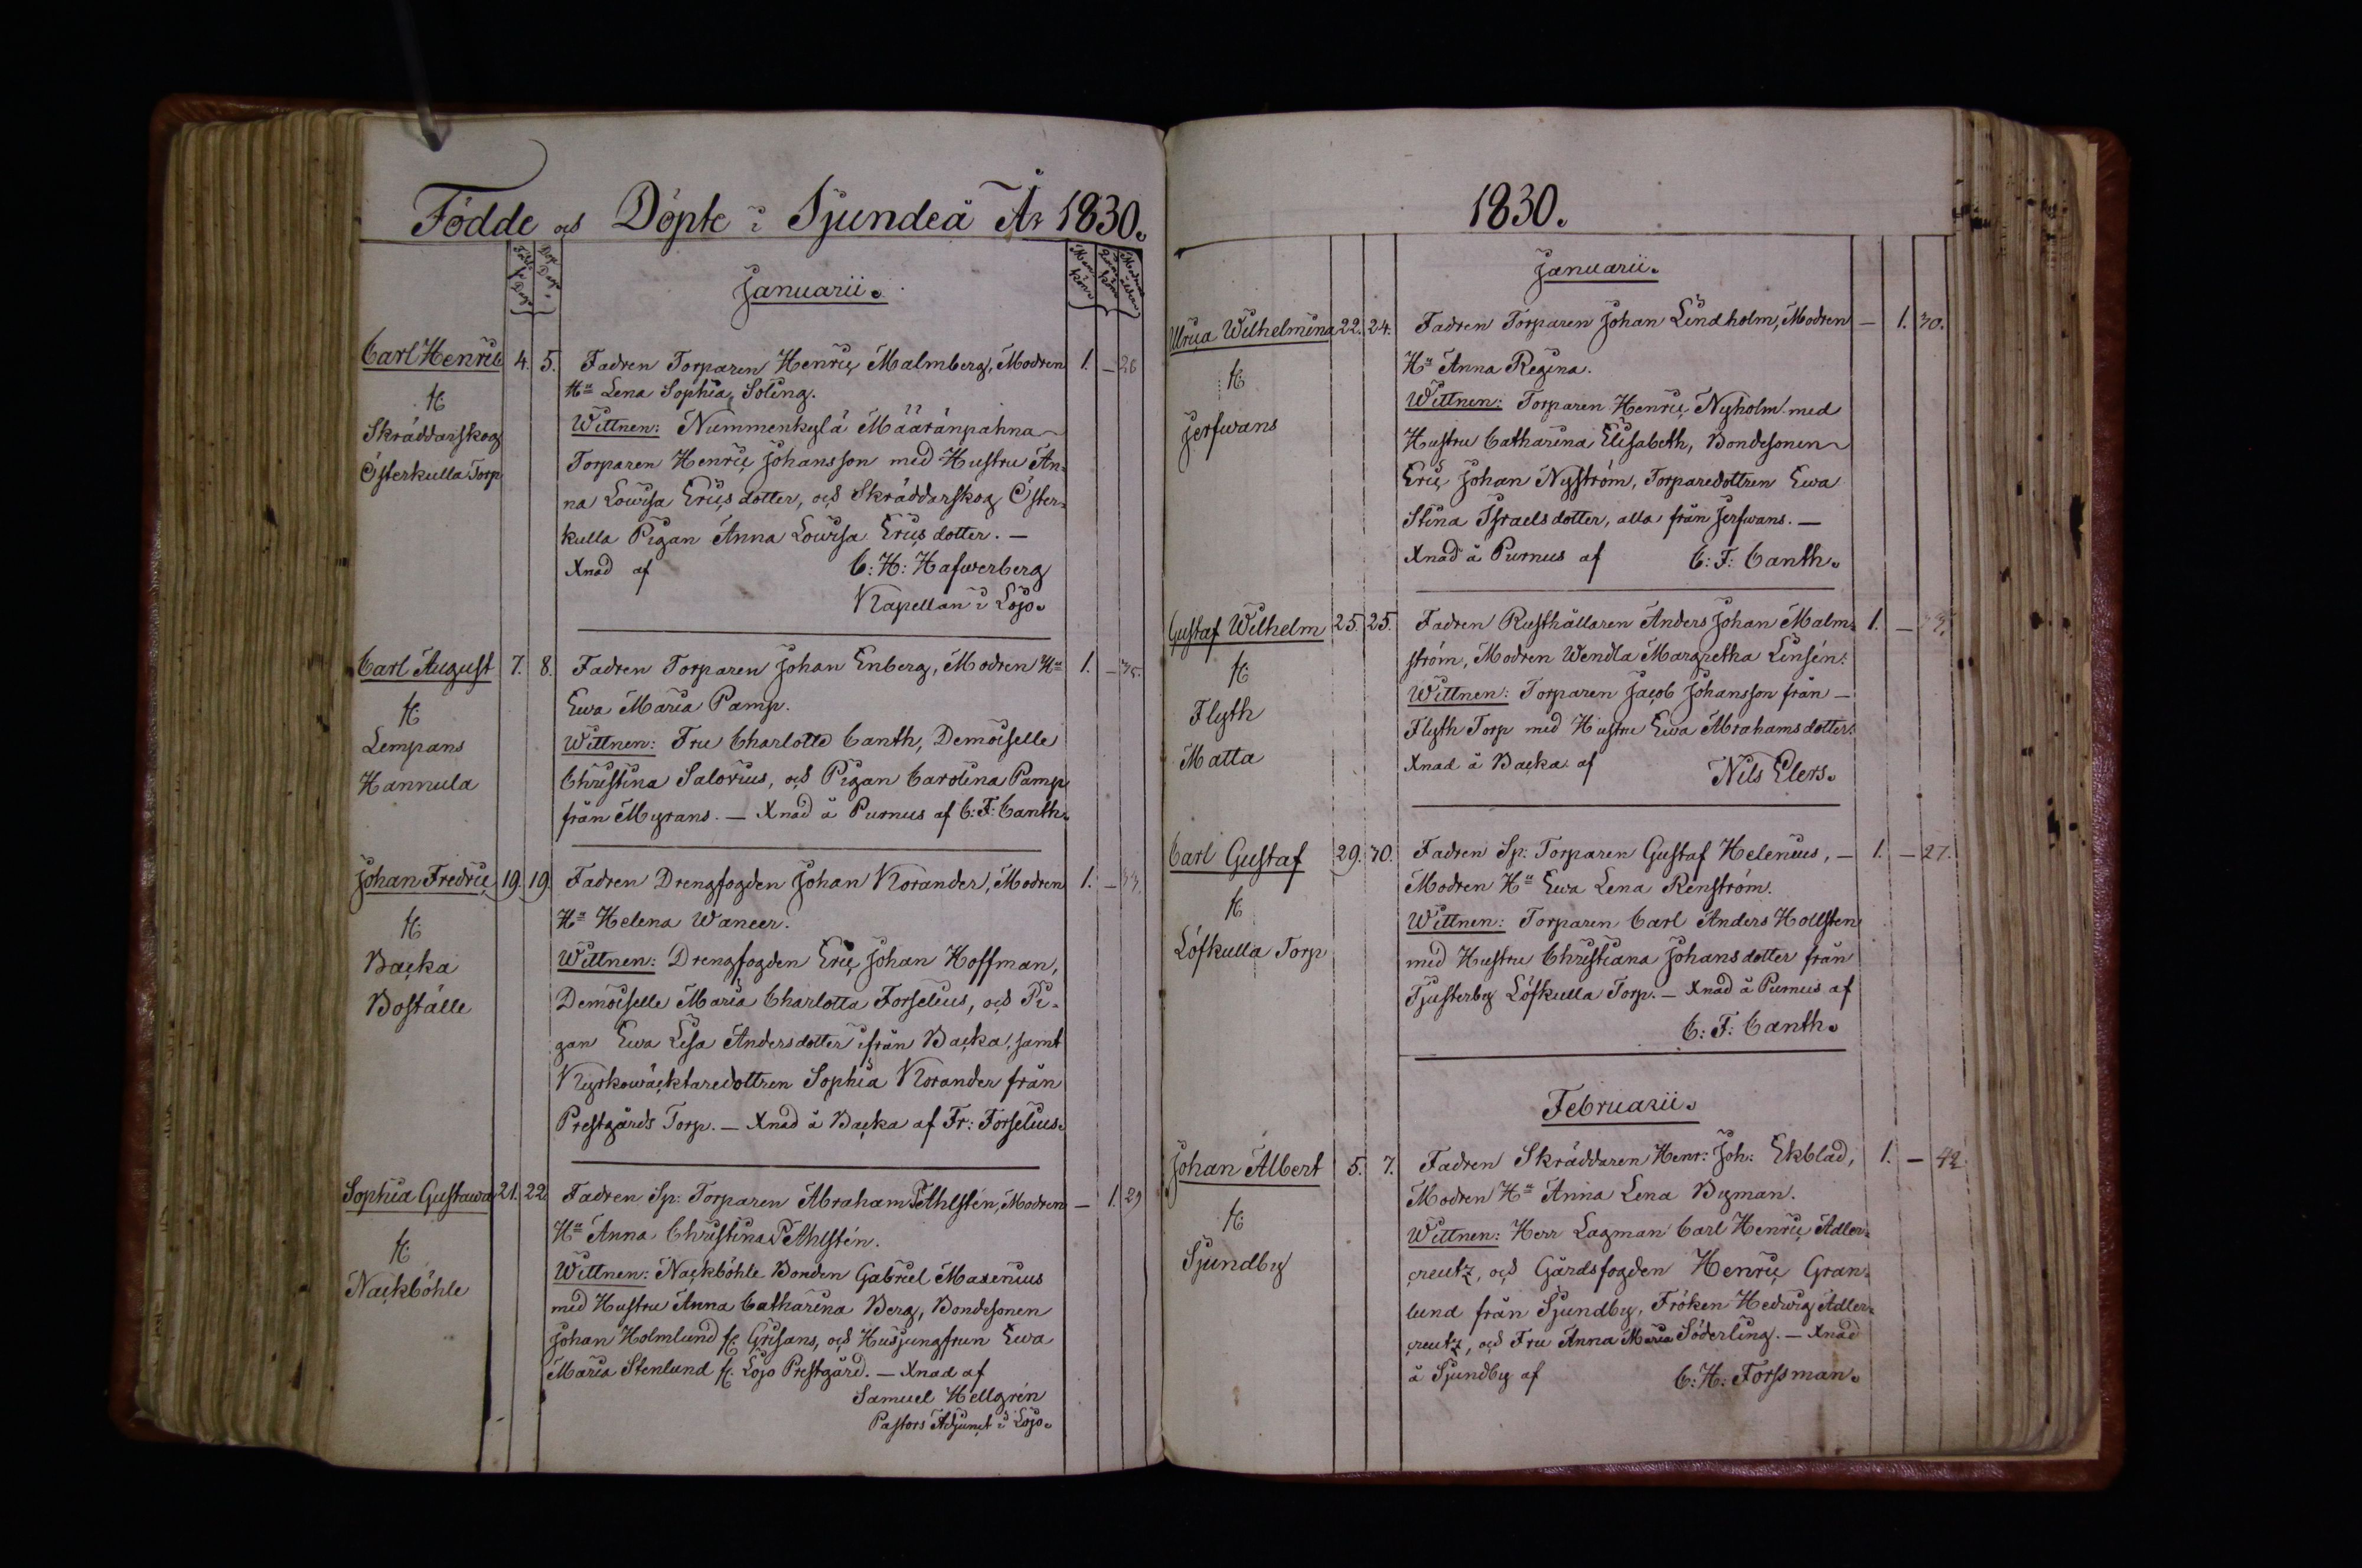 Födde och Döpte i Sjundeå År 1830.
Januarii.
Carl Henric 4. 5. Fadren Torparen Henric Malmberg, Modren 1. — 26
fr. Hu Lena Sophia Soling.
Skräddarskog Wittnen: Nummenkylä Määränpahna
Österkulla Torp Torparen Henric Johansson med Hustru An-
na Lowisa Ericsdotter, och Skräddarskog Öster-
kulla Pigan Anna Lowisa Ericsdotter. —
Xnad af C: H: Hafwerberg
Kapellan i Lojo.
Carl August 7. 8. Fadren Torparen Johan Enberg, Modren Hu 1. — 35.
fr. Ewa Maria Pamp.
Lempans Wittnen: Fru Charlotte Canth, Demoiselle
Hannula Christina Salovius, och Pigan Carolina Pamp
från Myrans. — Xnad å Purnus af C: F: Canth.
Johan Fredric 19. 19. Fadren Drengfogden Johan Korander, Modren 1. — 33.
fr. Hu Helena Waneer.
Backa Wittnen: Drengfogden Eric Johan Hoffman,
Boställe Demoiselle Maria Charlotta Forselius, och Pi-
gan Ewa Lisa Andersdotter ifrån Backa, samt
Kyrkowäcktaredottren Sophia Korander från
Prestgårds Torp. — Xnad å Backa af Fr: Forselius.
Sophia Gustawa 21. 22. Fadren Sp: Torparen Abraham PAhlstén, Modren — 1. 29
fr. Hu Anna Christina PAhlstén.
Nackböhle Wittnen: Nackböhle Bonden Gabriel Maxenius
med Hustru Anna Catharina Berg, Bondesonen
Johan Holmlund fr. Grisans, och Husjungfrun Ewa
Maria Stenlund fr. Lojo Prestgård. — Xnad af
Samuel Hellgrén
Pastors Adjunct i Lojo.
1830.
Januarii.
Ulrica Wilhelmina 22. 24. Fadren Torparen Johan Lindholm, Modren — 1. 30.
fr. Hu Anna Regina.
Jerfwans Wittnen: Torparen Henric Nyholm med
Hustru Catharina Elisabeth, Bondesonen
Eric Johan Nyström, Torparedottren Ewa
Stina Israelsdotter, alla från Jerfwans. —
Xnad å Purnus af C: F: Canth.
Gustaf Wilhelm 25. 25. Fadren Rusthållaren Anders Johan Malm- 1. —
fr. ström, Modren Wendla Margretha Linsén.
Flyth Wittnen: Torparen Jacob Johansson från —
Matta Flyth Torp med Hustru Ewa Abrahamsdotter.
Xnad å Backa af Nils Elers.
Carl Gustaf 29. 30. Fadren Sp: Torparen Gustaf Helenius, — 1. — 27.
fr. Modren Hu Ewa Lena Renström.
Löfkulla Torp Wittnen: Torparen Carl Anders Hollsten
med Hustru Christiana Johansdotter från
Tjusterby Löfkulla Torp. — Xnad å Purnus af
C: F: Canth.
Februarii.
Johan Albert 5. 7. Fadren Skräddaren Henr: Joh: Ekblad, 1. — 42.
fr. Modren Hu Anna Lena Byman.
Sjundby Wittnen: Herr Lagman Carl Henric Adler-
creutz, och Gårdsfogden Henric Gran-
lund från Sjundby, Fröken Hedwig Adler-
creutz, och Fru Anna Maria Söderling. — Xnad
å Sjundby af C: H: Forssman.